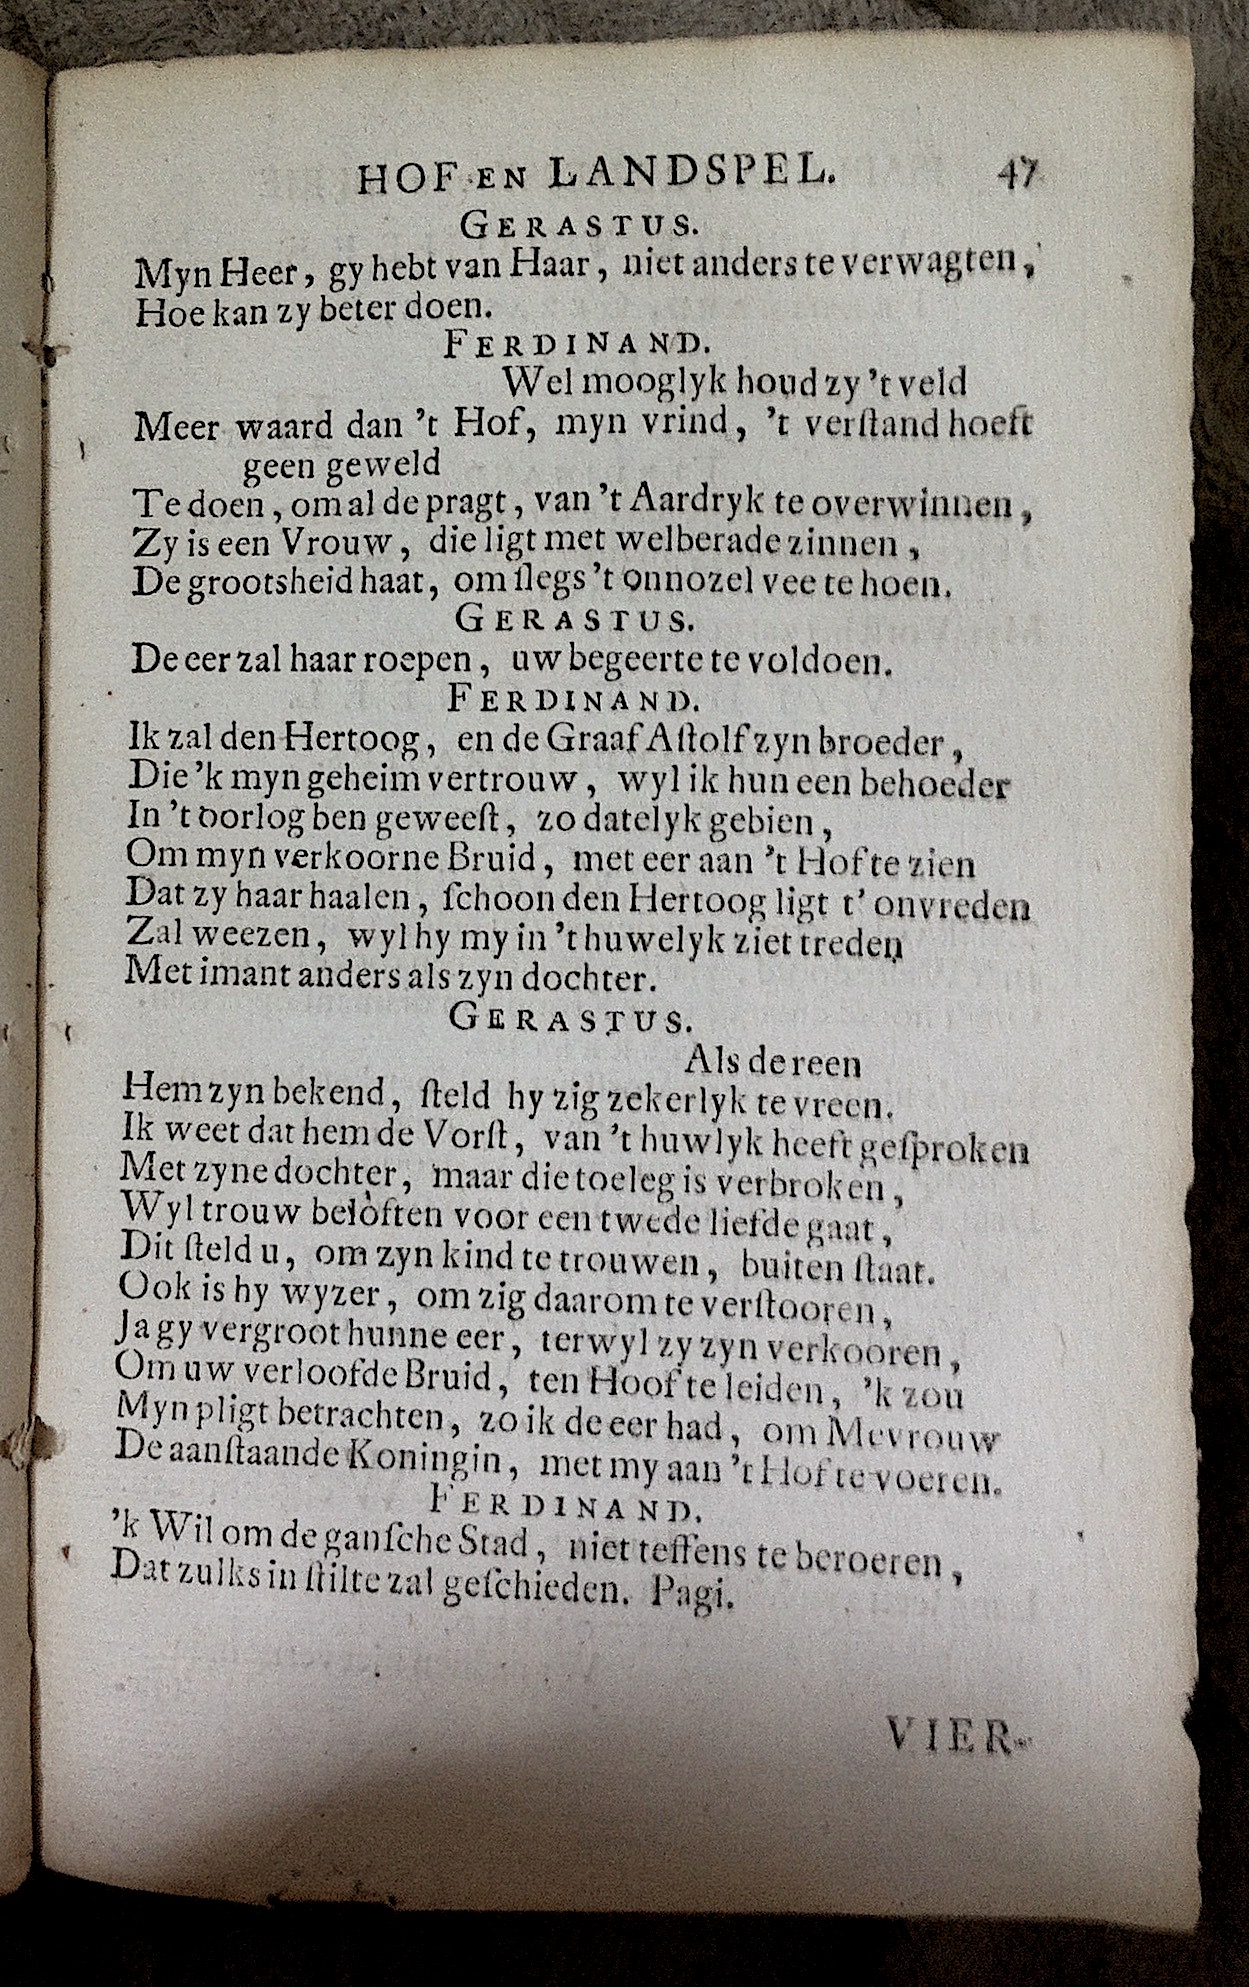 HOF EN LANDSPEL. 47
GERASTUS.
Myn Heer, gy hebt van Haar, niet anders te verwagten,
Hoe kan zy beter doen.
FERDINAND.
Wel mooglyk houd zy 't veld
Meer waard dan 't Hof, myn vrind, 't verſtand hoeft
geen geweld
Te doen, om al de pragt, van 't Aardryk te overwinnen,
Zy is een Vrouw, die ligt met welberade zinnen,
De grootsheid haat, om ſlegs 't onnozel vee te hoen.
GERASTUS.
De eer zal haar roepen, uw begeerte te voldoen.
FERDINAND.
Ik zal den Hertoog, en de Graaf Aſtolf zyn broeder,
Die 'k myn geheim vertrouw, wyl ik hun een behoeder
In 't oorlog ben geweeſt, zo datelyk gebien,
Om myn verkoorne Bruid, met eer aan 't Hof te zien
Dat zy haar haalen, ſchoon den Hertoog ligt t' onvreden
Zal weezen, wyl hy my in 't huwelyk ziet treden
Met imant anders als zyn dochter.
GERASTUS.
Als de reen
Hem zyn bekend, ſteld hy zig zekerlyk te vreen.
Ik weet dat hem de Vorſt, van 't huwlyk heeft geſproken
Met zyne dochter, maar die toeleg is verbroken,
Wyl trouw beloften voor een twede liefde gaat,
Dit ſteld u, om zyn kind te trouwen, buiten ſtaat.
Ook is hy wyzer, om zig daarom te verſtooren,
Ja gy vergroot hunne eer, terwyl zy zyn verkooren,
Om uw verloofde Bruid, ten Hoof te leiden, 'k zou
Myn pligt betrachten, zo ik de eer had, om Mevrouw
De aanſtaande Koningin, met my aan 't Hof te voeren.
FERDINAND.
'k Wil om de ganſche Stad, niet teffens te beroeren,
Dat zulks in ſtilte zal geſchieden. Pagi.
VIER-